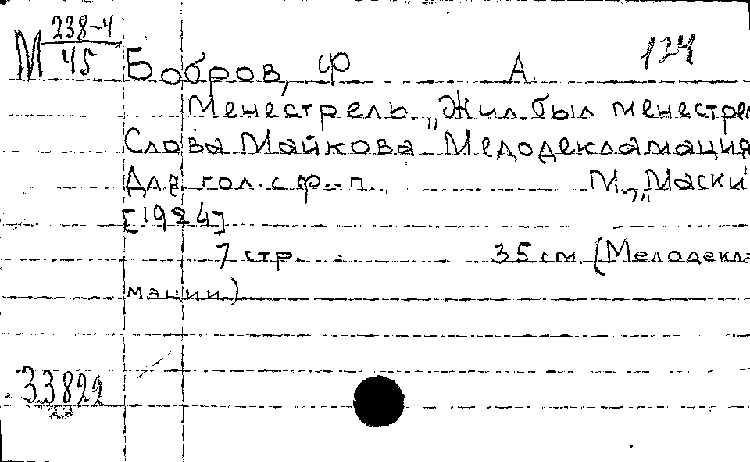 М 238-4
45
Бобров, Ф А. 124
Менестрель „Жил был менестрел
Слова Майкова Мелодекламация
Для гол. с ф-п М., „Маски
[1924]
7 стр. 35 см. (Мелодекла-
мации.)
33822